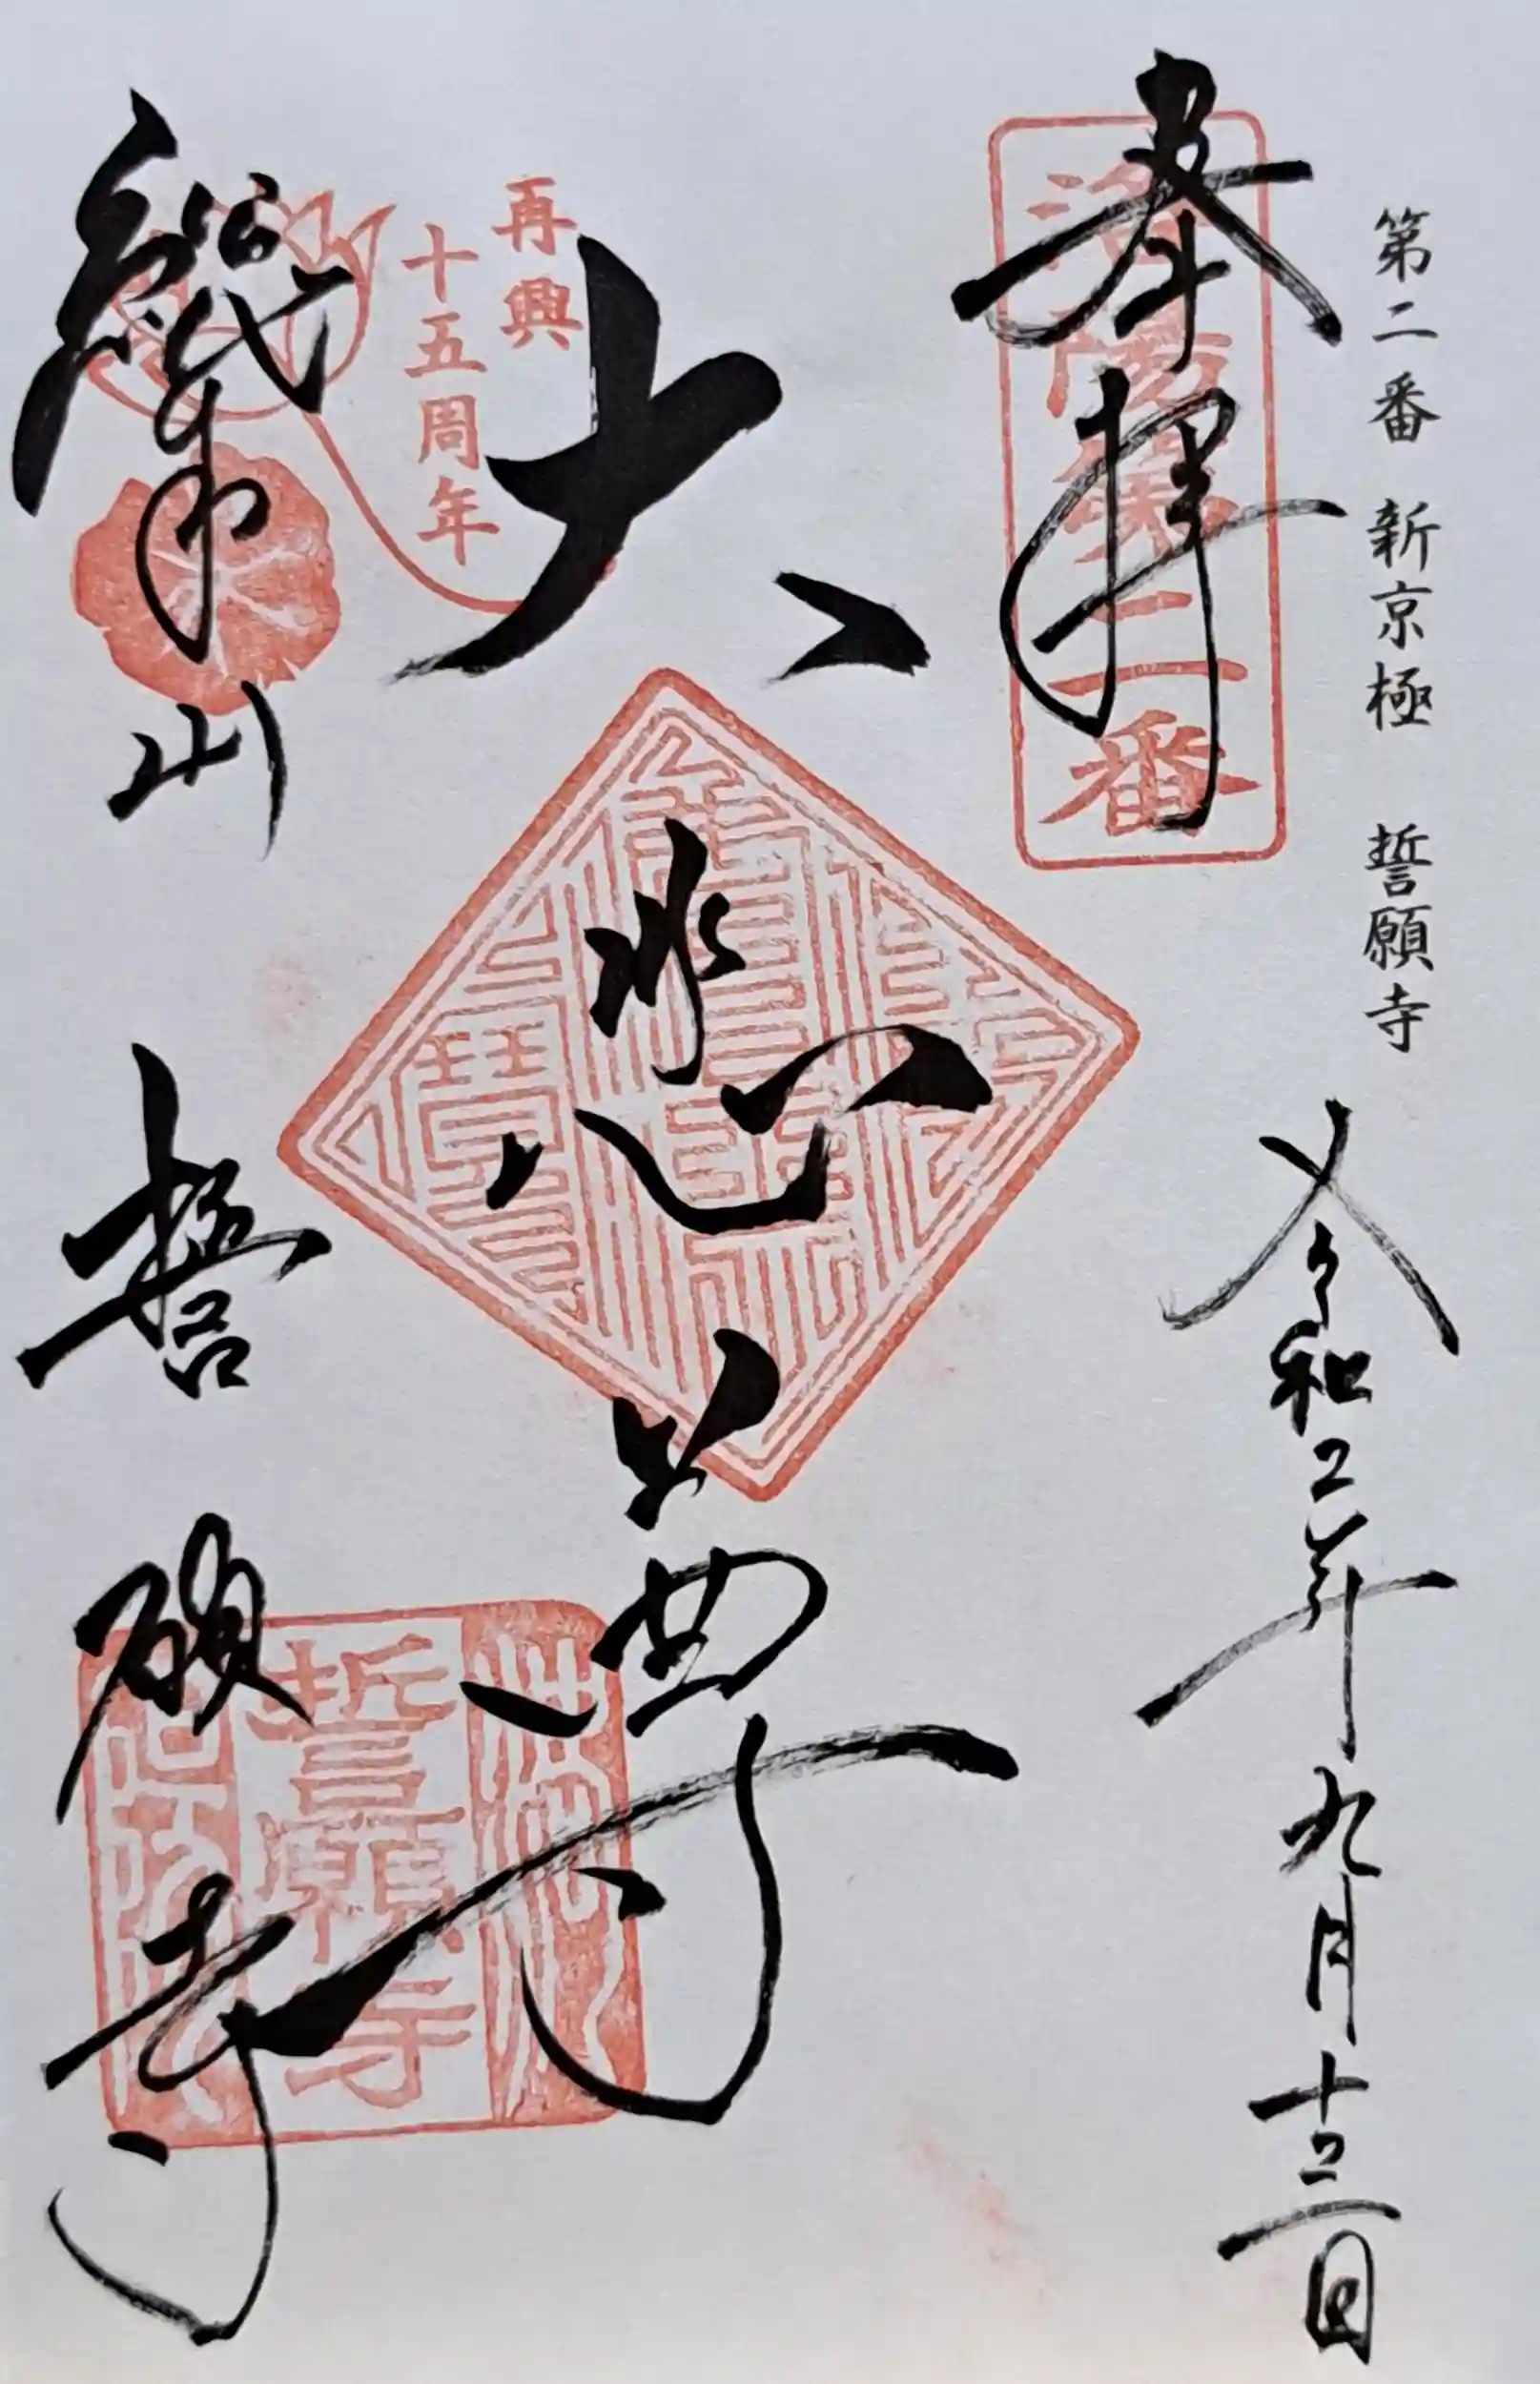 第二番 新京極 誓願寺
令和二年九月十三日
奉拝
洛陽第二番
大悲尊
再興
十五周年
誓願寺
山
誓願寺